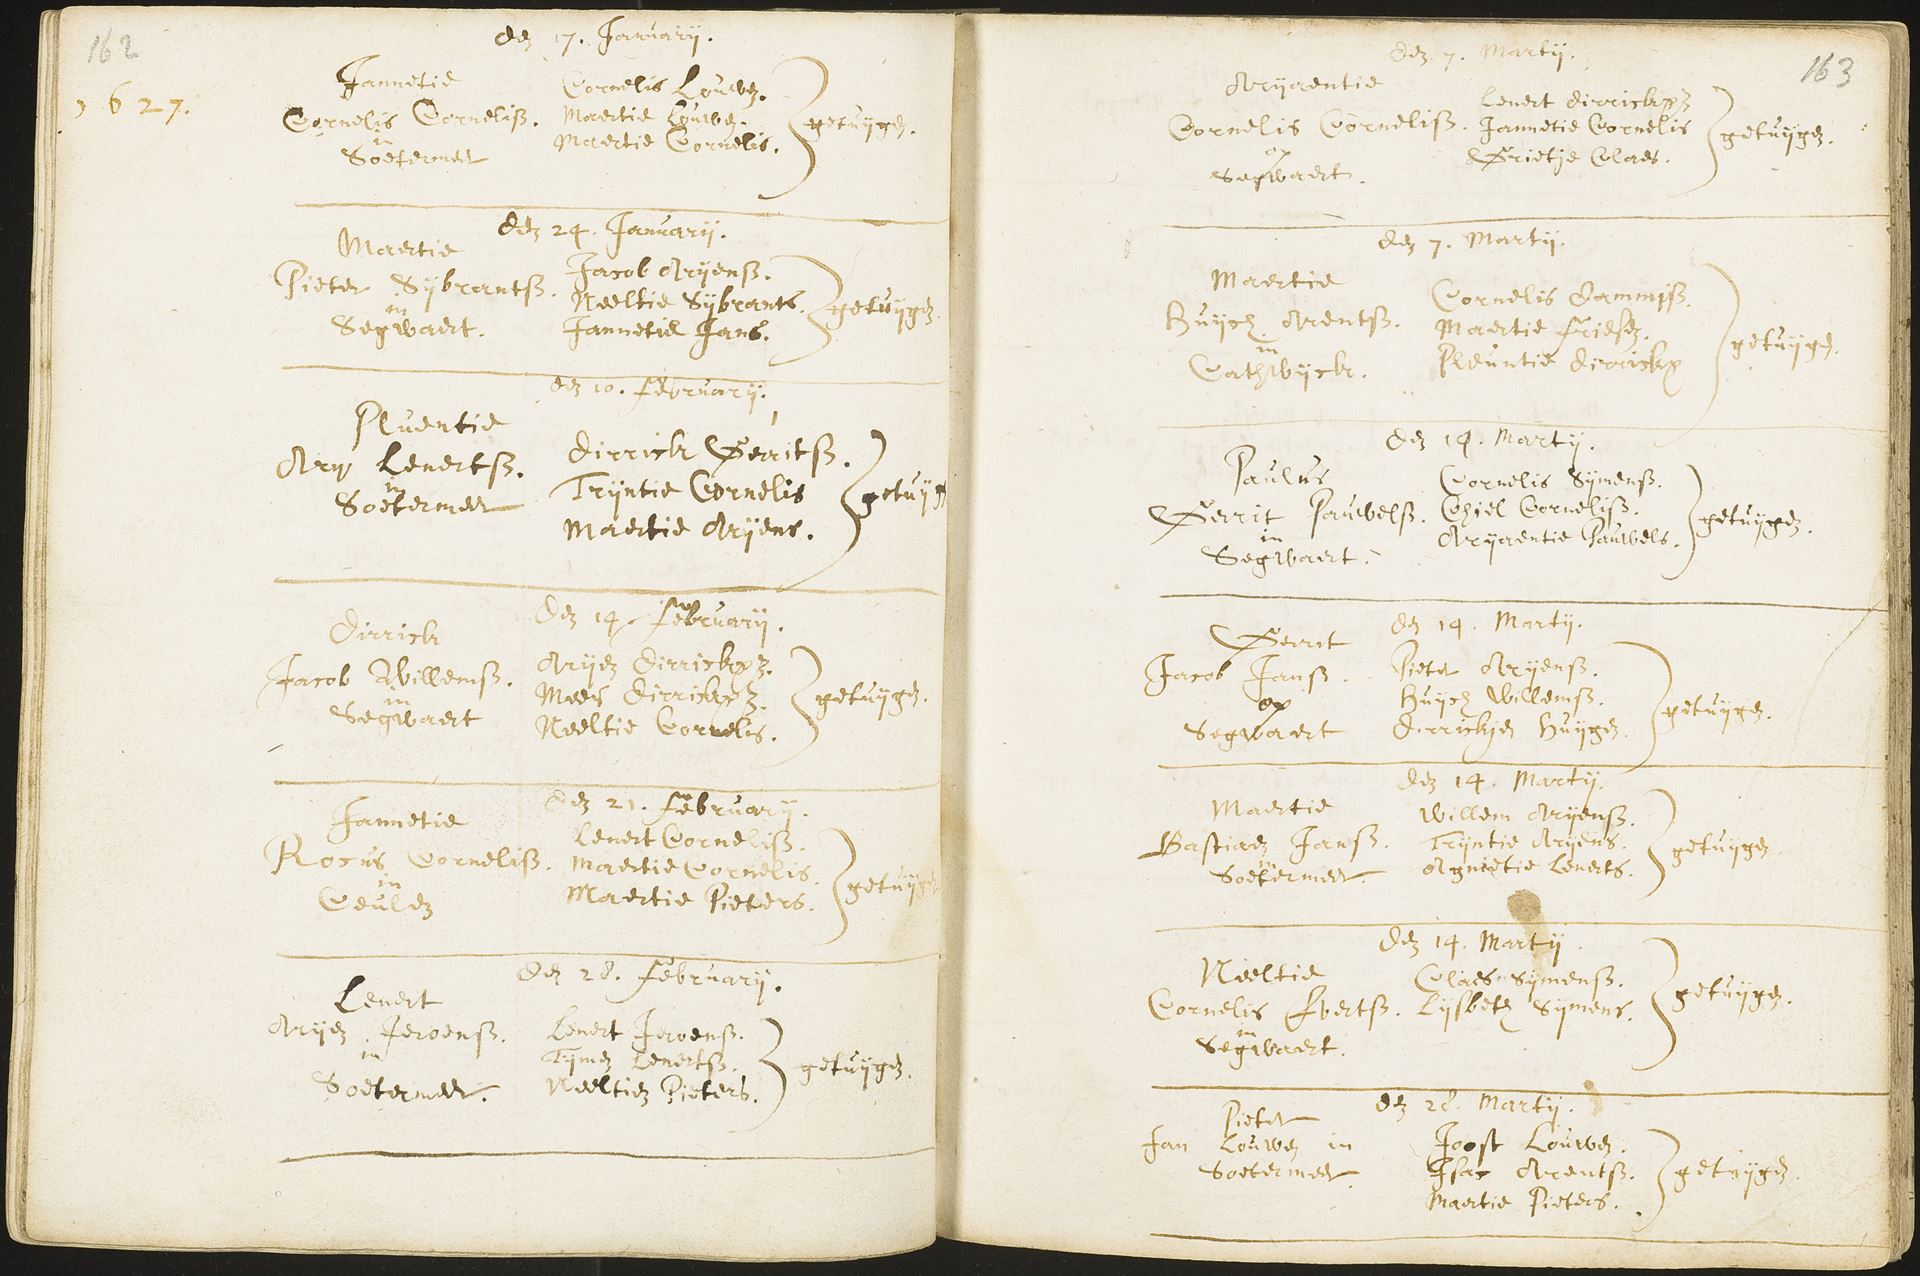 162
1627.
den 17. Januarij.
Jannetie
Cornelis Cornelisz.
in
Soetermeer
Cornelis Louwen.
Maertie Louwen.
Maertie Cornelis.
getuijgen.
den 24. Januarij.
Maertie
Pieter Sybrantsz.
in
Segwaert.
Jacob Arijensz.
Neeltie Sybrants.
Jannetie Jans.
getuijgen
den 10. februarij.
Pluentie
Ary Lenertsz.
in
Soetermeer
Dirrick Gerritsz.
Trijntie Cornelis
Maertie Arijens.
getuijgen
den 14. februarij.
Dirrick
Jacob Willemsz.
in
Segwaert
Arijen Dirrickxz.
Mees Dirrickxz.
Neeltie Cornelis.
getuijgen.
den 21. februarij.
Jannetie
Rocus Cornelisz.
in
Ceulen
Lenert Cornelisz.
Maertie Cornelis.
Maertie Pieters.
getuijgen
den 28. februarij.
Lenert
Arijen Jeroensz.
in
Soetermeer.
Lenert Jeroensz.
Tijmen Lenertsz.
Neeltien Pieters.
getuijgen.
163
den 7. Martij.
Arijaentie
Cornelis Cornelisz.
op
Segwaert.
Lenert Dirrickxz
Jannetie Cornelis
Grietje Claes.
getuijgen.
den 7. Martij.
Maertie
Huijch Arentsz.
in
Cathwijck.
Cornelis Dammisz.
Maertie friesen.
Pleuntie Dirrickx
getuijgen.
den 14. Martij.
Paulus
Gerrit Pauwelsz.
in
Segwaert.
Cornelis Symensz.
Chiel Cornelisz.
Arijaentie Pauwels.
getuijgen.
den 14. Martij.
Gerrit
Jacob Jansz.
op
Segwaert
Pieter Arijensz.
Huijch Willemsz.
Dirrickjen Huijgen.
getuijgen.
den 14. Martij.
Maertie
Bastiaen Jansz.
in
Soetermeer.
Willem Arijensz.
Trijntie Arijens.
Agnietie Lenerts.
getuijgen
den 14. Martij.
Neeltie
Cornelis Evertsz.
in
Segwaert.
Claes Symensz.
Lijsbeth Symens.
getuijgen.
den 28. Martij.
Pieter
Jan Louwen in
Soetermeer.
Joost Louwen.
Isac Arentsz.
Maertie Pieters.
getuijgen.